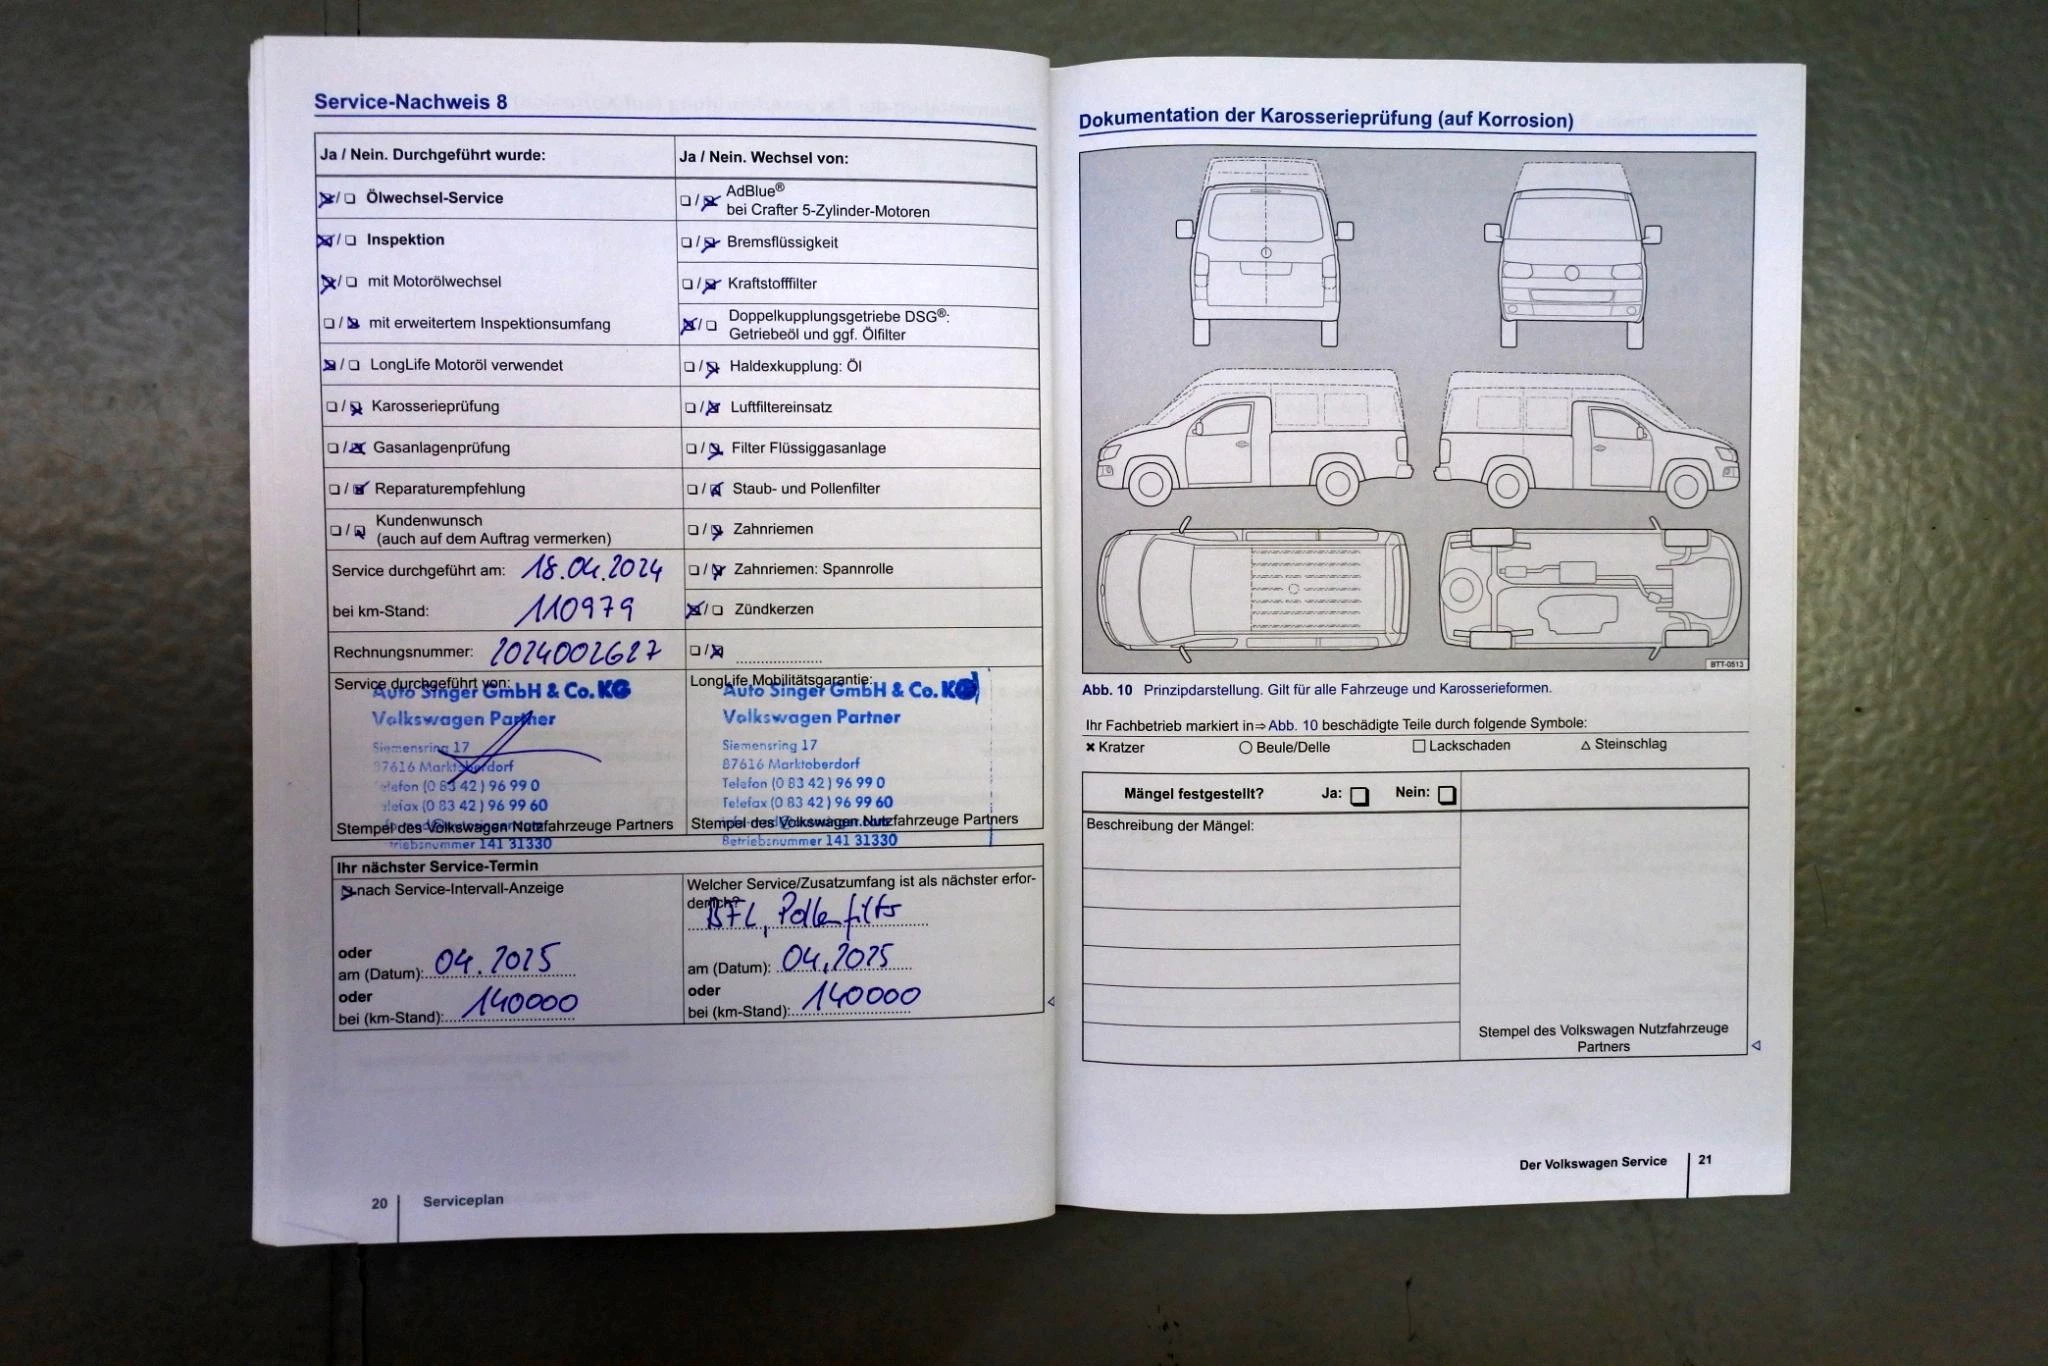 Service-Nachweis 8
Ja / Nein. Durchgeführt wurde:
Ölwechsel-Service
Inspektion
mit Motorölwechsel
mit erweitertem Inspektionsumfang
LongLife Motoröl verwendet
Karosserieprüfung
Gasanlagenprüfung
Reparaturempfehlung
Kundenwunsch
(auch auf dem Auftrag vermerken)
Service durchgeführt am: 18.04.2024
bei km-Stand: 110979
Rechnungsnummer: 2024002627
Ja / Nein. Wechsel von:
AdBlue®
bei Crafter 5-Zylinder-Motoren
Bremsflüssigkeit
Kraftstofffilter
Doppelkupplungsgetriebe DSG®:
Getriebeöl und ggf. Ölfilter
Haldexkupplung: Öl
Luftfiltereinsatz
Filter Flüssiggasanlage
Staub- und Pollenfilter
Zahnriemen
Zahnriemen: Spannrolle
Zündkerzen
Service durchgeführt von:
Auto Singer GmbH & Co. KG
Volkswagen Partner
Siemensring 17
87616 Marktoberdorf
Telefon (0 83 42) 96 99 0
Telefax (0 83 42) 96 99 60
Stempel des Volkswagen Nutzfahrzeuge Partners
Betriebsnummer 141 31330
LongLife Mobilitätsgarantie:
Auto Singer GmbH & Co. KG
Volkswagen Partner
Siemensring 17
87616 Marktoberdorf
Telefon (0 83 42) 96 99 0
Telefax (0 83 42) 96 99 60
Stempel des Volkswagen Nutzfahrzeuge Partners
Betriebsnummer 141 31330
Ihr nächster Service-Termin
nach Service-Intervall-Anzeige
oder
am (Datum): 04.2025
oder
bei (km-Stand): 140000
Welcher Service/Zusatzumfang ist als nächster erfor-
derlich?
BFL, Pollenfilter
am (Datum): 04.2025
oder
bei (km-Stand): 140000
20 Serviceplan
Dokumentation der Karosserieprüfung (auf Korrosion)
BTT-0513
Abb. 10 Prinzipdarstellung. Gilt für alle Fahrzeuge und Karosserieformen.
Ihr Fachbetrieb markiert in ⇒ Abb. 10 beschädigte Teile durch folgende Symbole:
✖ Kratzer ○ Beule/Delle □ Lackschaden △ Steinschlag
Mängel festgestellt? Ja: Nein:
Beschreibung der Mängel:
Stempel des Volkswagen Nutzfahrzeuge
Partners
Der Volkswagen Service 21